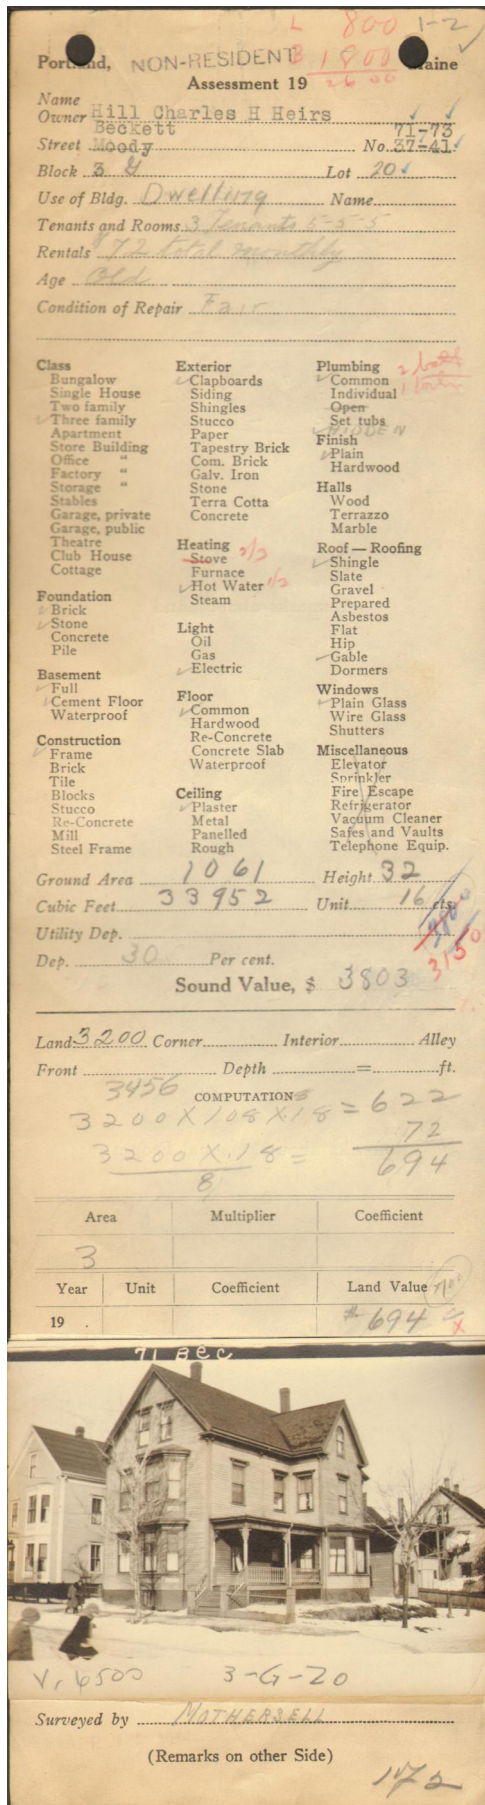 L 800 1-2
Portland, NON-RESIDENT B 1800 Maine
2600
Assessment 19
Name
Owner Hill Charles H Heirs
Beckett 71-73
Street Moody No. 37-41
Block 3 G Lot 20
Use of Bldg. Dwelling Name
Tenants and Rooms 3 Tenants 5-5-5
Rentals 72 total monthly
Age Old
Condition of Repair Fair
Class
Bungalow
Single House
Two family
Three family
Apartment
Store Building
Office "
Factory "
Storage "
Stables
Garage, private
Garage, public
Theatre
Club House
Cottage
Foundation
Brick
Stone
Concrete
Pile
Basement
Full
Cement Floor
Waterproof
Construction
Frame
Brick
Tile
Blocks
Stucco
Re-Concrete
Mill
Steel Frame
Exterior
Clapboards
Siding
Shingles
Stucco
Paper
Tapestry Brick
Com. Brick
Galv. Iron
Stone
Terra Cotta
Concrete
Heating 2/3
Stove
Furnace
Hot Water 1/3
Steam
Light
Oil
Gas
Electric
Floor
Common
Hardwood
Re-Concrete
Concrete Slab
Waterproof
Ceiling
Plaster
Metal
Panelled
Rough
Plumbing 2 bath
Common
Individual
Open
Set tubs
HIDDEN
Finish
Plain
Hardwood
Halls
Wood
Terrazzo
Marble
Roof — Roofing
Shingle
Slate
Gravel
Prepared
Asbestos
Flat
Hip
Gable
Dormers
Windows
Plain Glass
Wire Glass
Shutters
Miscellaneous
Elevator
Sprinkler
Fire Escape
Refrigerator
Vacuum Cleaner
Safes and Vaults
Telephone Equip.
Ground Area 1061 Height 32
Cubic Feet 33952 Unit 16 cts.
Utility Dep.
3150
Dep. 30 Per cent.
Sound Value, $ 3803
Land 3200 Corner Interior Alley
Front Depth = ft.
3456 COMPUTATIONS
3200 X 108 X .18 = 622
72
3200 X .18 = 694
8
Area Multiplier Coefficient
3
Year Unit Coefficient Land Value 700
19 . $ 694 X
71 Bec
V. 6500 3-G-20
Surveyed by MOTHERSELL
(Remarks on other Side)
172